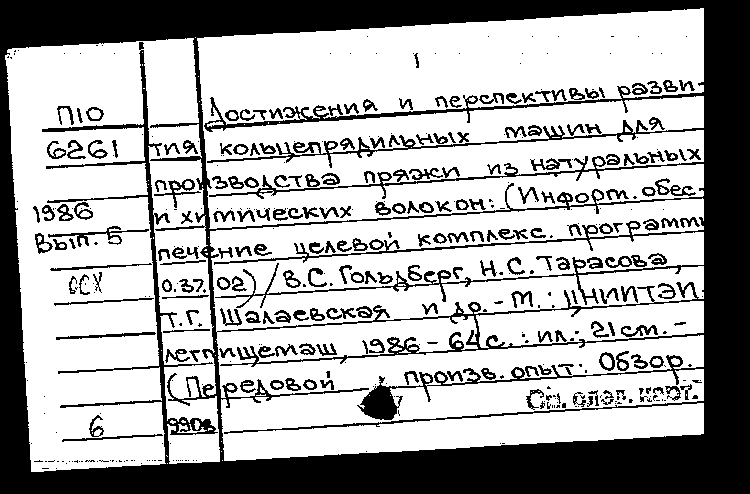 1
П10
Достижения и перспективы разви-
6261
тия кольцепрядильных машин для
производства пряжи из натуральных
1986
и химических волокон: (Информ. обес-
Вып. 5
печение целевой комплекс. программы
ОСХ
0.37.02) / В.С. Гольдберг, Н.С. Тарасова,
Т.Г. Шалаевская и др. - М.: ЦНИИТЭИ-
легпищемаш, 1986 - 64 с. : ил.; 21 см. -
(Передовой произв. опыт: Обзор.
См. след. карт.
6
990в